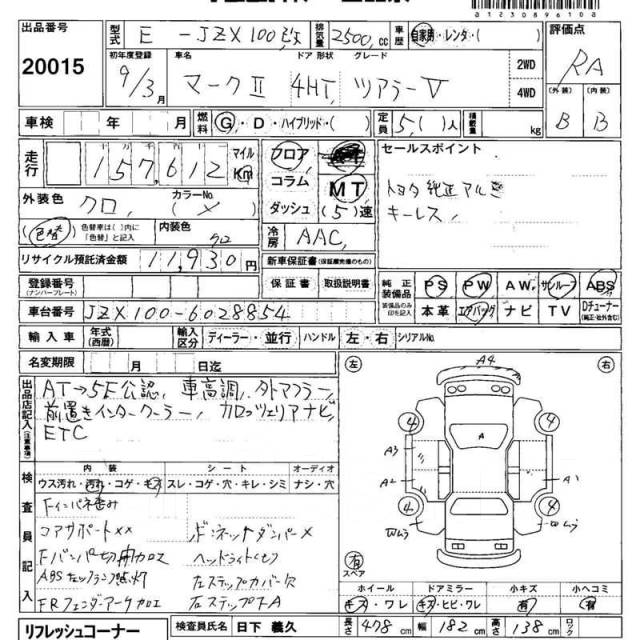 01230896100
出品番号
20015
型式 E - JZX100改
排気量 2500 cc
車歴 自家用・レンタ・( )
評価点
RA
初年度登録 9/3月
車名 マークⅡ
ドア 形状 4HT
グレード ツアラーV
2WD
4WD
(外装) B
(内装) B
車検 年 月
燃料 G・D・ハイブリッド・( )
定員 5( )人
積載量 kg
走行
十万千百十一
157,612
マイル Km
フロア AT
コラム MT
ダッシュ (5)速
セールスポイント
トヨタ純正アルミ
キーレス
外装色 クロ
カラーNo. (メ)
(色替) 色替車は( )内に「色替」と記入
内装色 クロ
冷房 AAC
リサイクル預託済金額 11,930 円
新車保証書(保証継続後のもの)
保証書 取扱説明書
登録番号 (ナンバープレート)
純正装備品
装備品のみ○印を記入
PS PW AW サンルーフ ABS
本革 エアバッグ ナビ TV Dチューナー(純正・社外含む)
車台番号 JZX100-6028854
輸入車 年式(西暦)
輸入区分 ディーラー・並行
ハンドル 左・右
シリアルNo.
名変期限 月 日迄
出品店記入(注意事項)
AT→5F公認、車高調、外マフラー、
前置きインタークーラー、カロッツェリアナビ
ETC
検査員記入
内装 シート オーディオ
ウス汚れ・汚れ・コゲ・キズ スレ・コゲ・穴・キレ・シミ ナシ・穴
Fインパネ歪み
コアサポートXX
ボンネットダンパーX
Fバンパー切削カロX
ヘッドライトくもり
ABSチェックランプ点灯
左ステップカバー欠
FRフェンダーアーチカロエ
左ステップナA
左 右
A4
4 4
A3
A
A2
A1
4 4
Wムラ Wムラ
有
スペア
ホイール ドアミラー 小キズ 小ヘコミ
キズ・ワレ キズ・ヒビ・ワレ 有 有
リフレッシュコーナー
検査員氏名 日下 義久
長さ 478 cm
幅 182 cm
高さ 138 cm